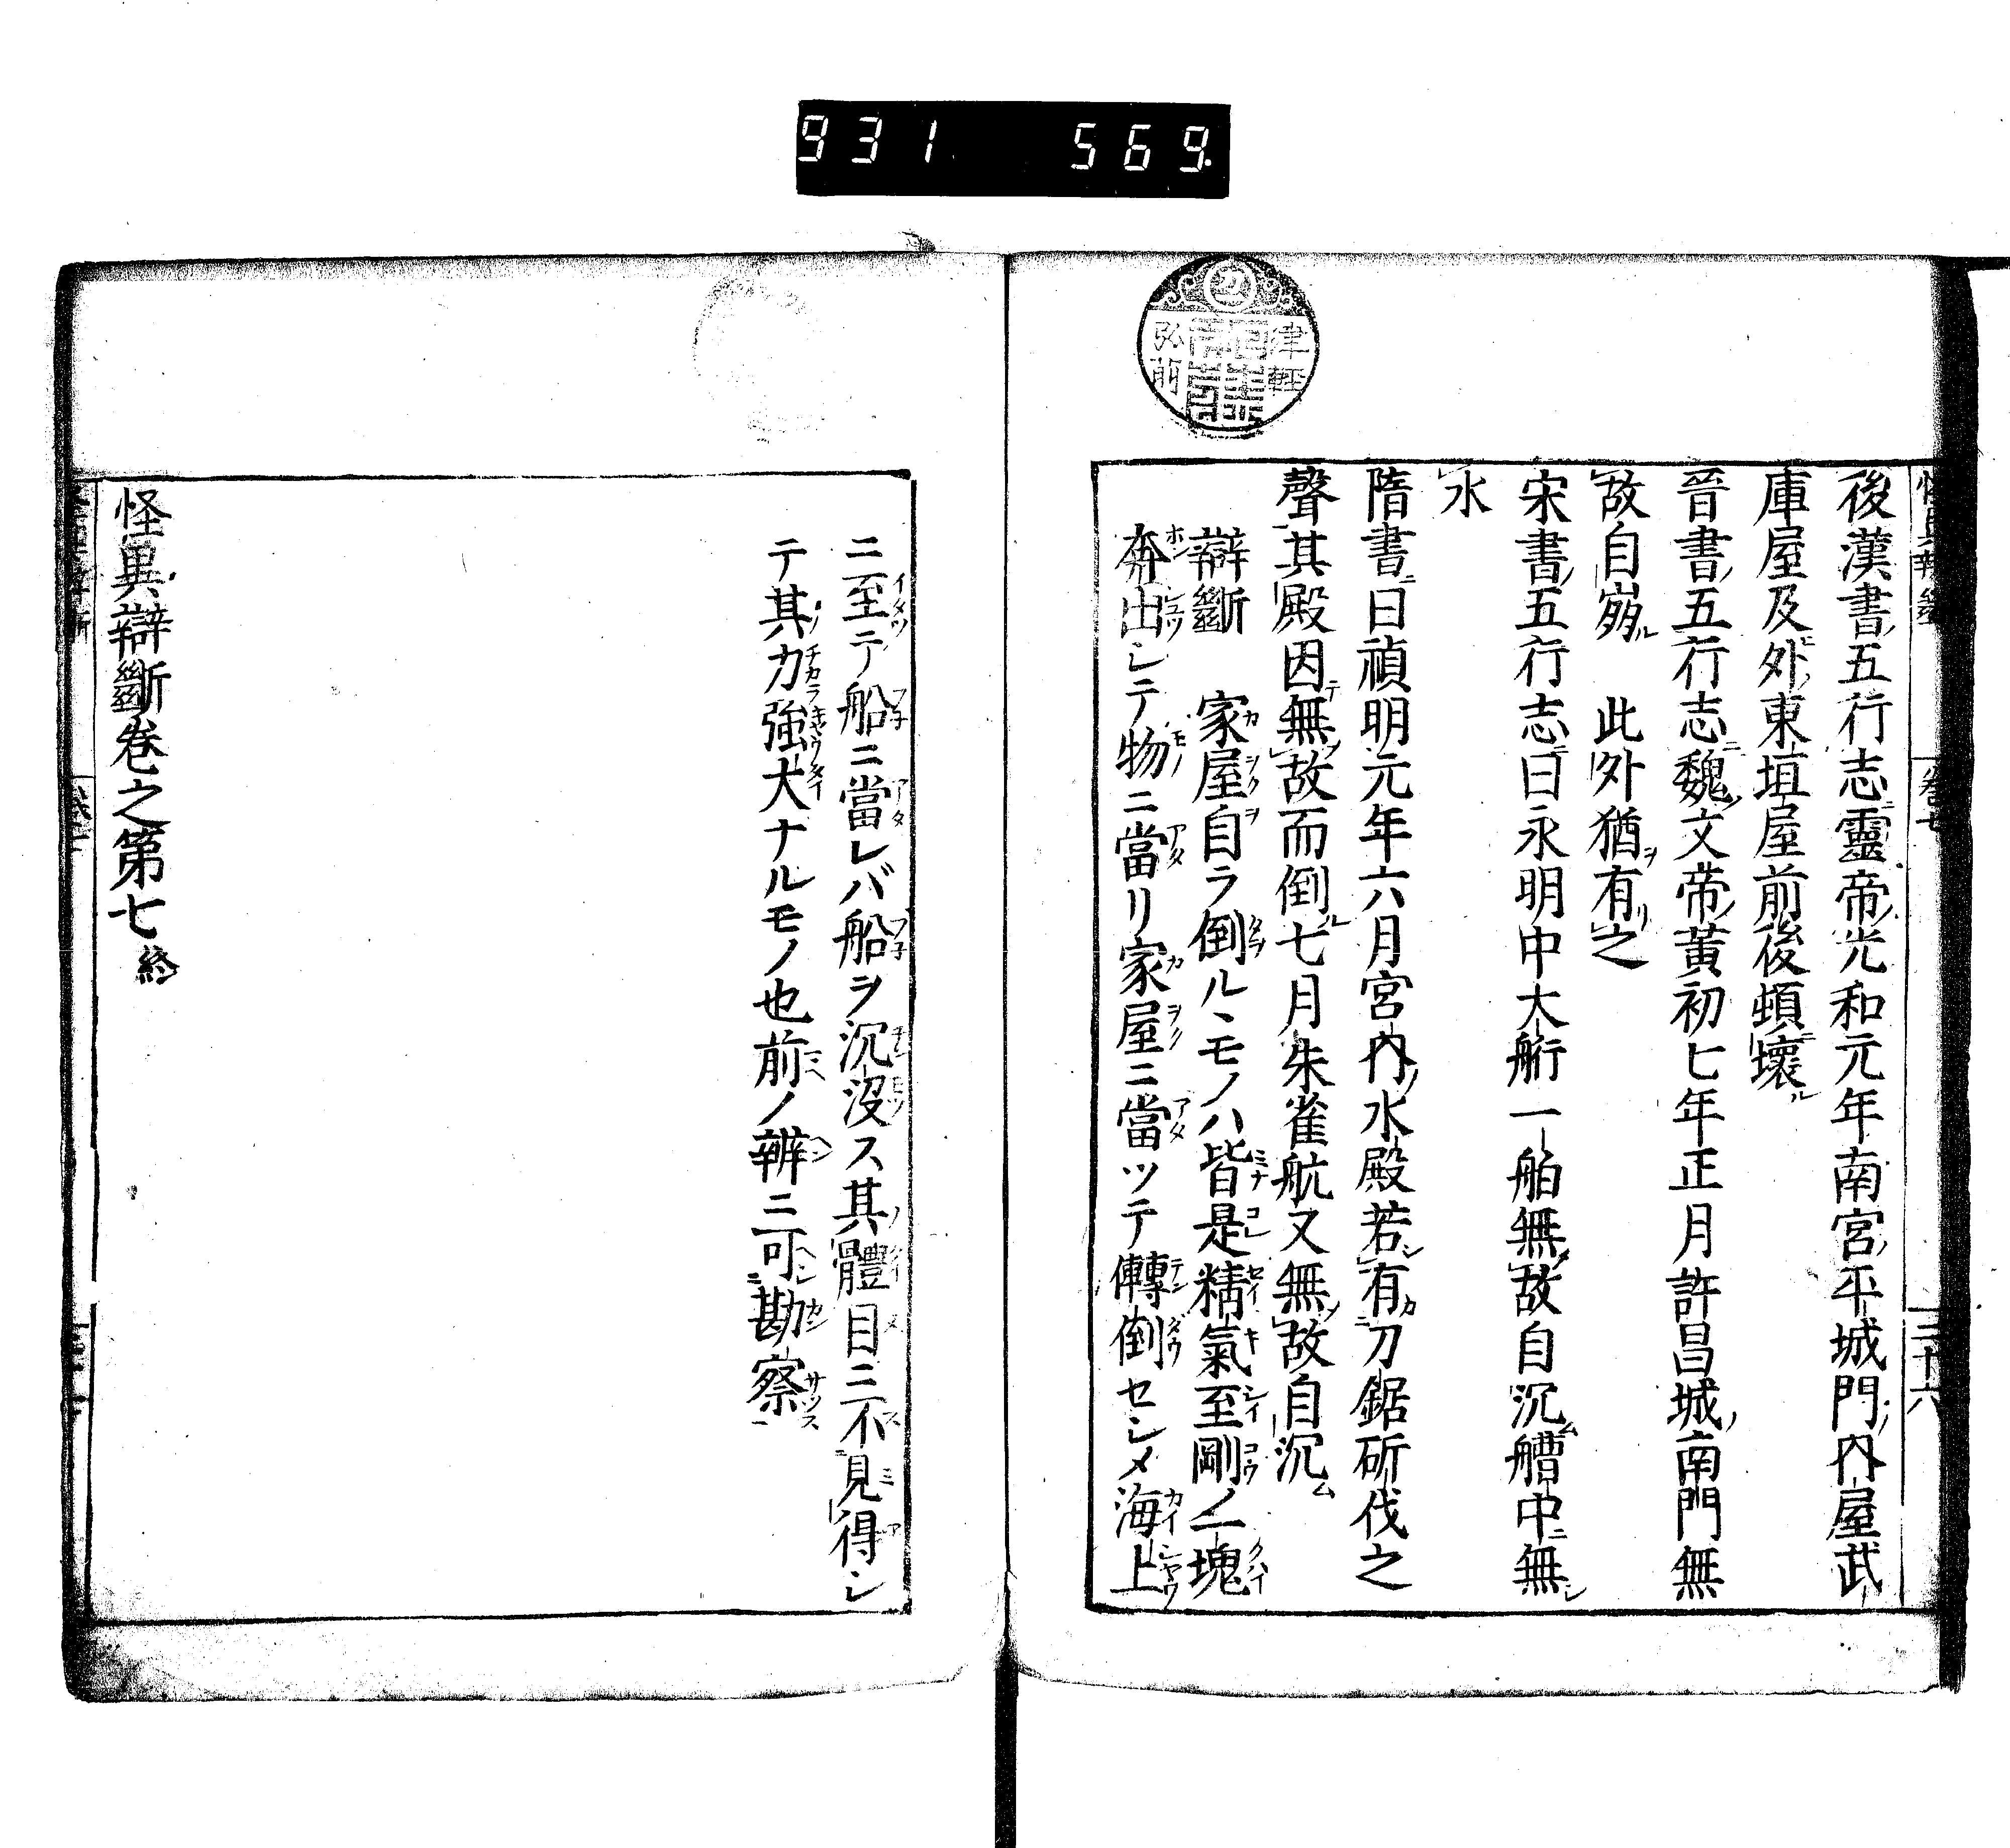 931 569.
津輕
弘前
後漢書五行志靈帝光和元年南宮平城門内屋武
庫屋及外東垣屋前後頓壞
晉書五行志魏文帝黃初七年正月許昌城南門無
故自崩　此外猶有之
宋書五行志曰永明中大舫一舶無故自沉艚中無
水
隋書曰禎明元年六月宮内水殿若有刀鋸斫伐之
聲其殿因無故而倒七月朱雀航又無故自沉
辯斷　家屋自ラ倒ルヽモノハ皆是精氣至剛ノ一塊
奔出シテ物ニ當リ家屋ニ當ツテ轉倒セシメ海上
ニ至テ船ニ當レバ船ヲ沉沒ス其體目ニ不見得シ
テ其力強大ナルモノ也前ノ辨ニ可勘察
怪異辯斷卷之第七終
卷七
三十六